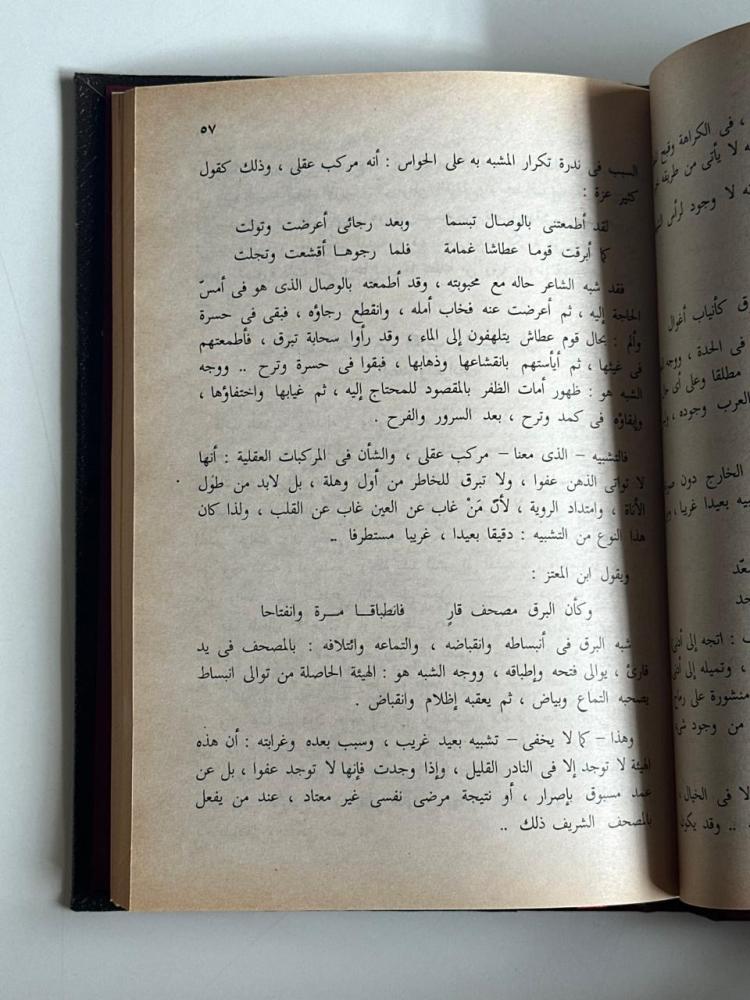 ٥٧
السبب فى ندرة تكرار المشبه به على الحواس : أنه مركب عقلى ، وذلك كقول
كثير عزة :
لقد أطمعتنى بالوصال تبسما وبعد رجائى أعرضت وتولت
كما أبرقت قوما عطاشا غمامة فلما رجوها أقشعت وتجلت
فقد شبه الشاعر حاله مع محبوبته ، وقد أطمعته بالوصال الذى هو فى أمسّ
الحاجة إليه ، ثم أعرضت عنه فخاب أمله ، وانقطع رجاؤه ، فبقى فى حسرة
وألم : بحال قوم عطاش يتلهفون إلى الماء ، وقد رأوا سحابة تبرق ، فأطمعتهم
فى غيثها ، ثم أيأستهم بانقشاعها وذهابها ، فبقوا فى حسرة وترح .. ووجه
الشبه هو : ظهور أمات الظفر بالمقصود للمحتاج إليه ، ثم غيابها واختفاؤها ،
وإبقاؤه فى كمد وترح ، بعد السرور والفرح .
فالتشبيه – الذى معنا – مركب عقلى ، والشأن فى المركبات العقلية : أنها
لا تواتى الذهن عفوا ، ولا تبرق للخاطر من أول وهلة ، بل لابد من طول
الأناة ، وامتداد الروية ، لأنّ مَنْ غاب عن العين غاب عن القلب ، ولذا كان
هذا النوع من التشبيه : دقيقا بعيدا ، غريبا مستطرفا ..
ويقول ابن المعتز :
وكأن البرق مصحف قارٍ فانطباقا مرة وانفتاحا
شبه البرق فى أنبساطه وانقباضه ، والتماعه وائتلافه : بالمصحف فى يد
قارئ ، يوالى فتحه وإطباقه ، ووجه الشبه هو : الهيئة الحاصلة من توالى انبساط
يصحبه التماع وبياض ، ثم يعقبه إظلام وانقباض .
وهذا – كما لا يخفى – تشبيه بعيد غريب ، وسبب بعده وغرابته : أن هذه
الهيئة لا توجد إلا فى النادر القليل ، وإذا وجدت فإنها لا توجد عفوا ، بل عن
عمد مسبوق بإصرار ، أو نتيجة مرضى نفسى غير معتاد ، عند من يفعل
بالمصحف الشريف ذلك ..
، فى الكراهة وقبح
ه لا يأتى من طريقه
ه لا وجود لرأس
ق كأنياب أغوال
فى الحدة ، ووجه
مطلقا وعلى أى
العرب وجوده ،
الخارج دون
بيه بعيدا غريبا ،
: اتجه إلى
، وتميله إلى
منشورة على رماح
من وجود
لا فى الخيال ،
.. وقد يكون